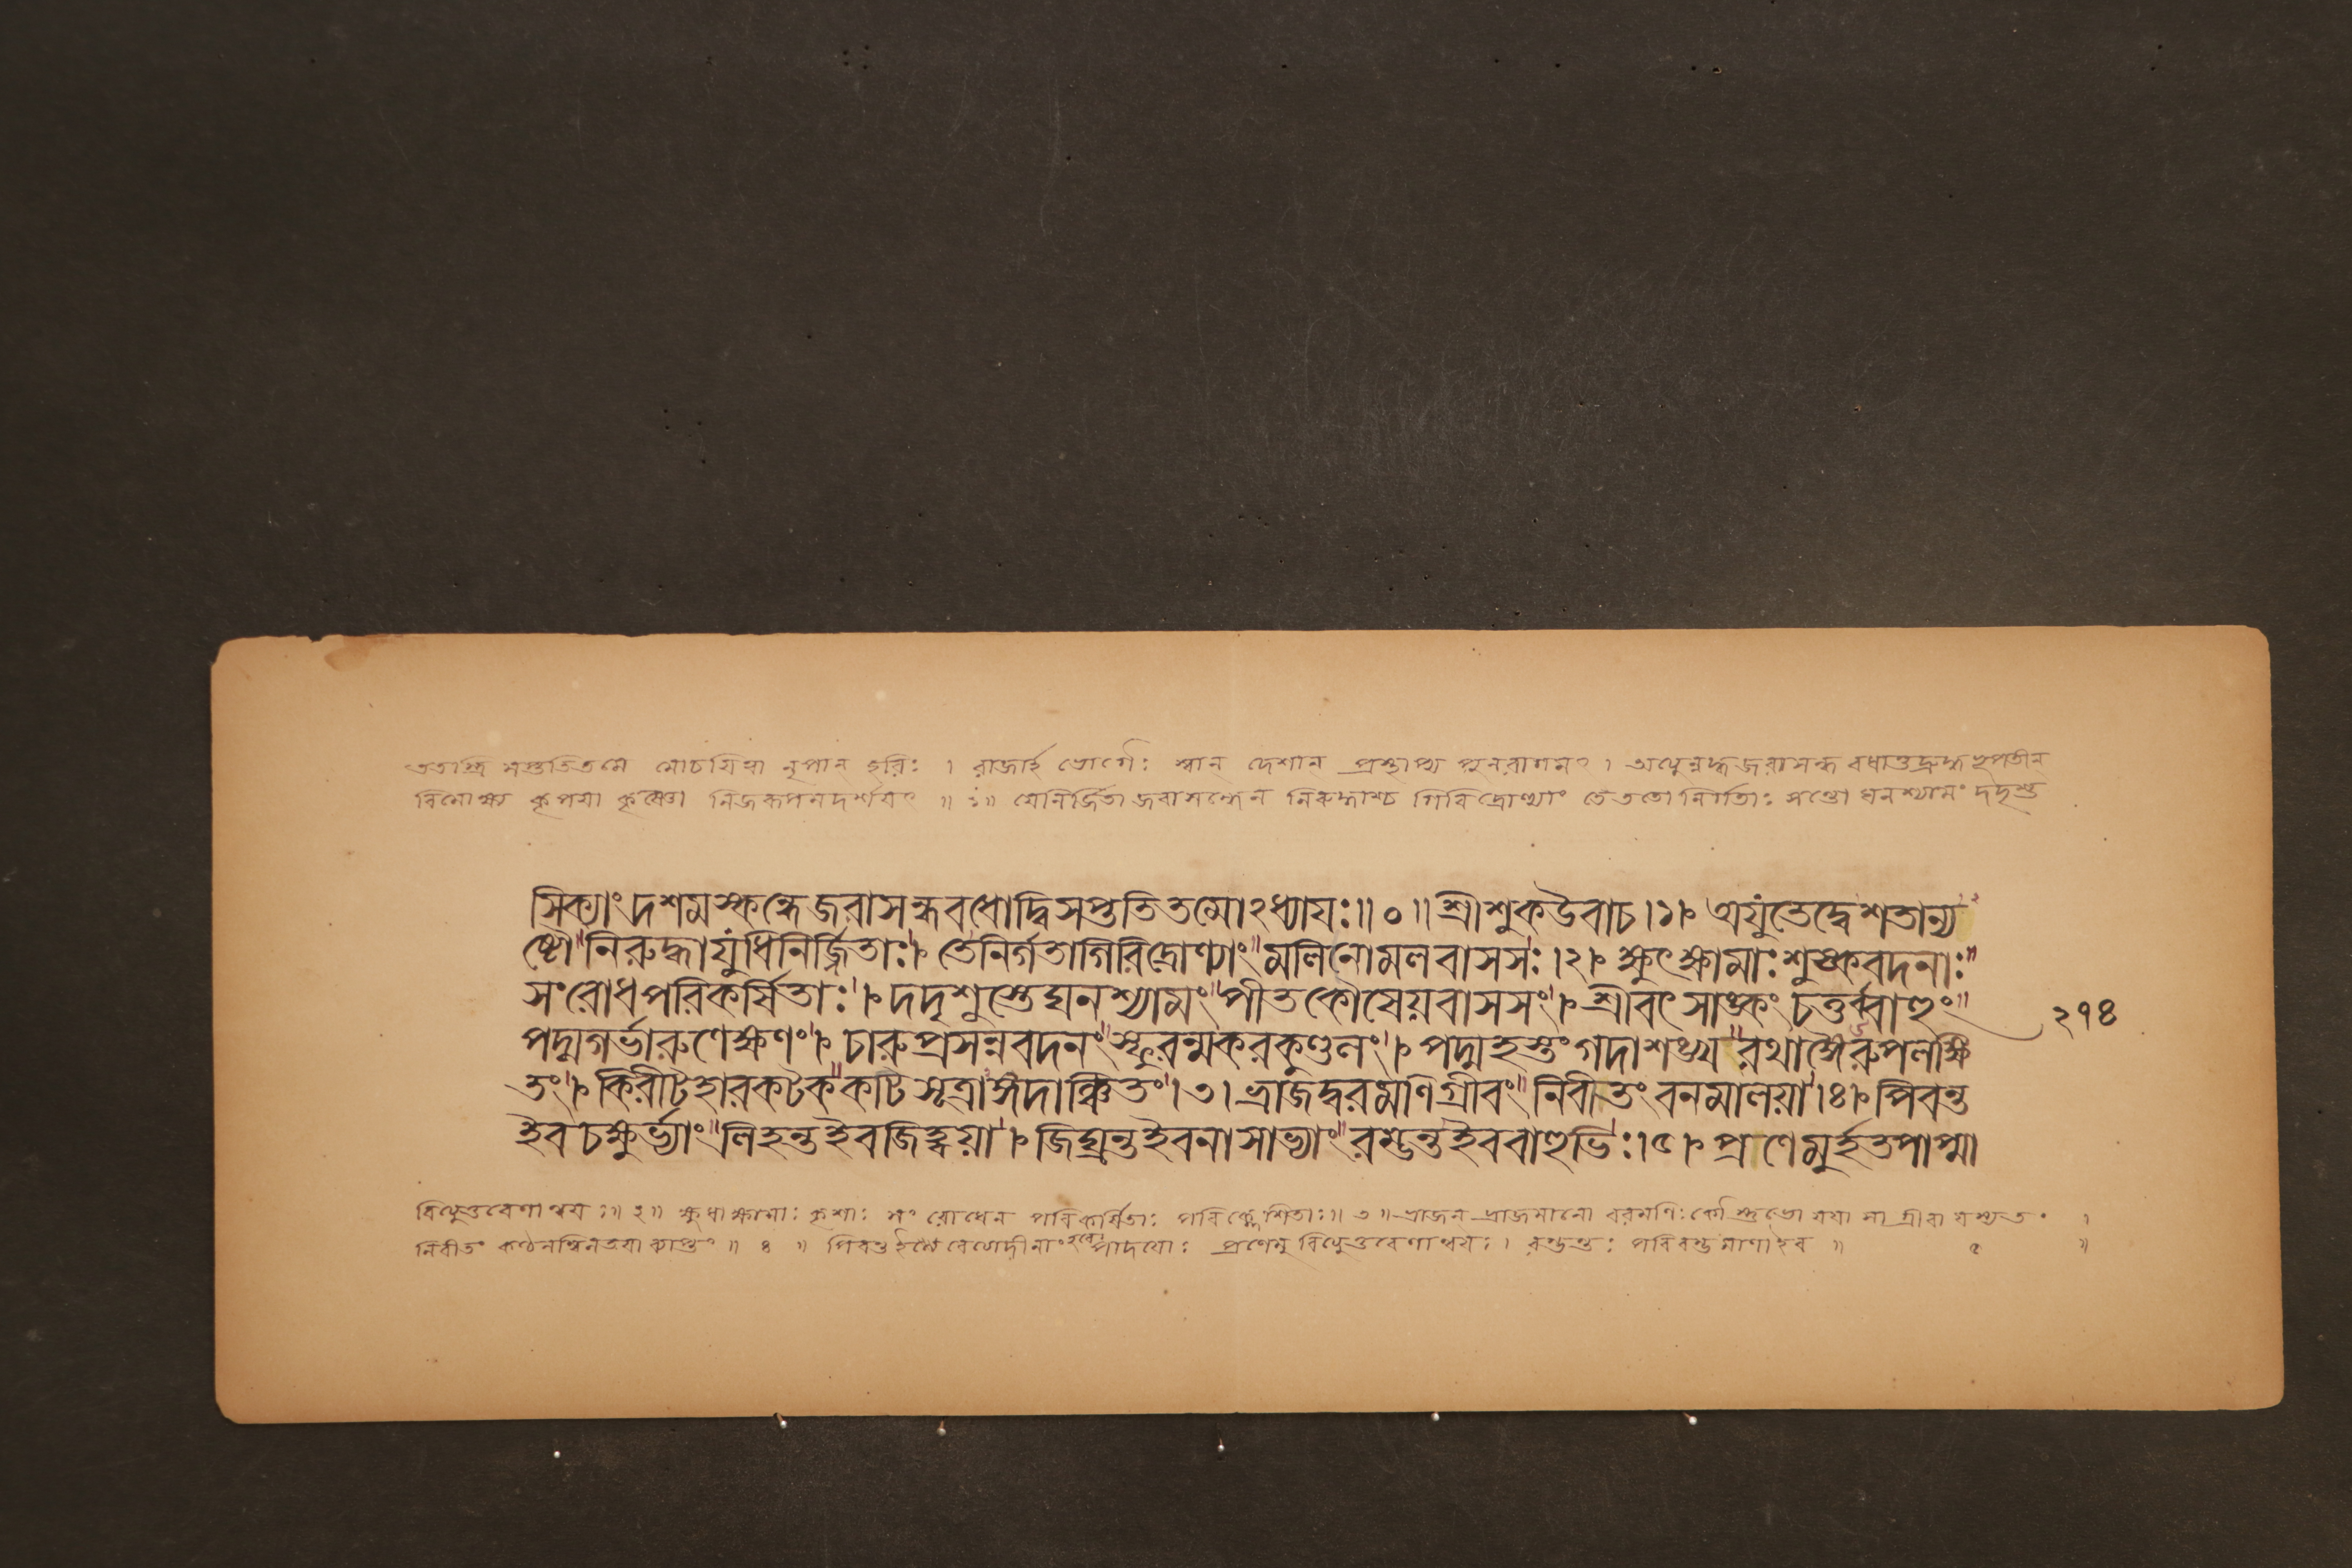 ততস্ত্রি সপ্ততিতমে মোচয়িত্বা নৃপান্ হরিঃ । রাজার্হ ভোগৈঃ স্বান্ দেশান্ প্রস্থাপ্য পুনরাগমৎ । অথোন্নদ্ধজরাসন্ধ বধাত্তদ্রুদ্ধ ভূপতীন্
বিলোক্য কৃপয়া কৃষ্ণো নিজরূপমদর্শয়ৎ ॥ ১॥ যেনির্জিতা জরাসন্ধেন নিরুদ্ধাশ্চ গিরিদ্রোণ্যাং তেততো নির্গতাঃ সন্তো ঘনশ্যামং দদৃশু
সিক্যাং দশমস্কন্ধে জরাসন্ধবধোদ্বিসপ্ততিতমোঽধ্যায়ঃ॥০॥ শ্রীশুকউবাচ।১। অযুতেদ্বেশতান্য
ষ্টৌ নিরুদ্ধাযুধিনির্জ্জিতাঃ। তেনির্গতাগিরিদ্রোণ্যাং মলিনোমলবাসসঃ।২। ক্ষুৎক্ষামাঃশুষ্কবদনাঃ
সংরোধপরিকর্ষিতাঃ। দদৃশুস্তেঘনশ্যামং পীতকৌষেয়বাসসং। শ্রীবৎসাঙ্কং চতুর্ব্বাহুং
২৭৪
পদ্মগর্ভারুণেক্ষণং। চারুপ্রসন্নবদনং স্ফুরন্মকরকুণ্ডলং। পদ্মহস্তংগদাশঙ্খ রথাঙ্গৈরুপলক্ষি
তং। কিরীটহারকটক কটিসূত্রাঙ্গদাঞ্চিতং।৩। ভ্রাজদ্বরমণিগ্রীবং নিবীতং বনমালয়া।৪। পিবন্ত
ইব চক্ষুর্ভ্যাং লিহন্তইবজিহ্বয়া। জিঘ্রন্তইবনাসাভ্যাং রম্ভন্তইববাহুভিঃ।৫। প্রণেমুর্হতপাপ্মা
বিত্থুত্তরেণান্বয়ঃ॥ ২॥ ক্ষুধাক্ষামাঃ কৃশাঃ সং রোধেন পরিকর্ষিতাঃ পরিক্লেশিতাঃ॥ ৩ ॥ ভ্রাজন্ ভ্রাজমানো বরমণিঃ কৌস্তুভো যয়া সা গ্রীবা যস্য তং ।
নিবীতং কণ্ঠলম্বিনতয়া ব্যাপ্তং ॥ ৪ ॥ পিবন্তইবেত্যাদীনাং হরেঃ পাদয়োঃ প্রণেমু বিত্থুত্তরেণান্বয়ঃ। রম্ভন্তঃ পরিরম্ভমাণাইব ॥ ৫ ॥